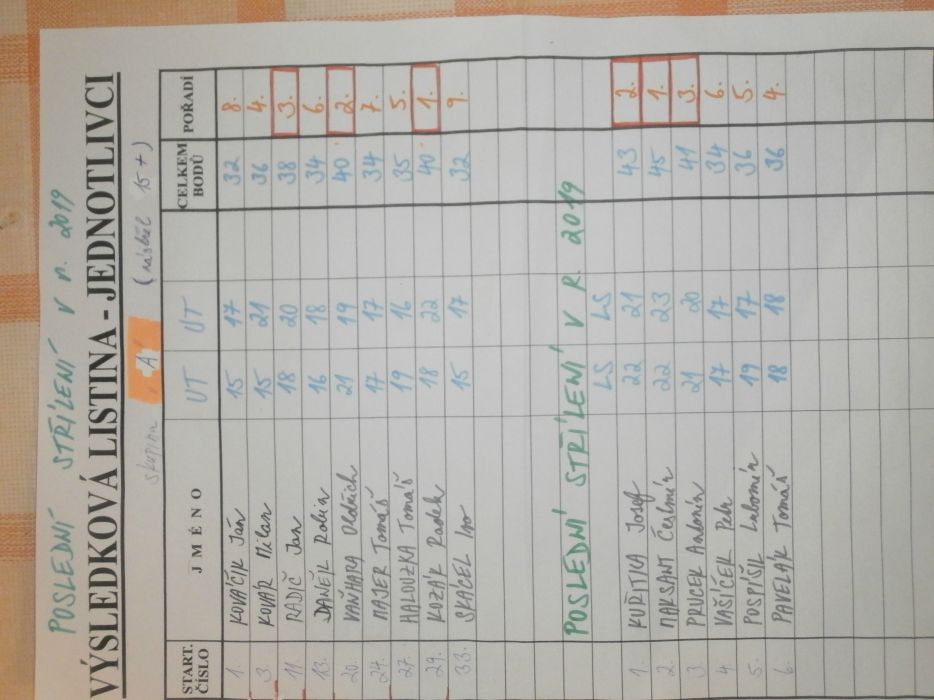 POSLEDNÍ STŘÍLENÍ V r. 2019
VÝSLEDKOVÁ LISTINA - JEDNOTLIVCI
skupina "A" (nástřel 15+)
START. ČÍSLO JMÉNO UT UT CELKEM BODŮ POŘADÍ
1. KOVAČÍK Ján 15 17 32 8.
3. KOVAŘ Milan 15 21 36 4.
11. RADIČ Jan 18 20 38 3.
13. DANĚK Robin 16 18 34 6.
20. VAŇHARA Oldřich 21 19 40 2.
24. MAJER Tomáš 17 17 34 7.
27. HALOUZKA Tomáš 19 16 35 5.
29. KOZÁK Radek 18 22 40 1.
33. SKÁCEL Ivo 15 17 32 9.
POSLEDNÍ STŘÍLENÍ V R. 2019
LS LS
1. KUŘITKA Josef 22 21 43 2.
2. MAKSANT Čestmír 22 23 45 1.
3. PRUCEK Antonín 21 20 41 3.
4. VAŠÍČEK Petr 17 17 34 6.
5. POSPÍŠIL Lubomír 19 17 36 5.
6. PAVELÁK Tomáš 18 18 36 4.